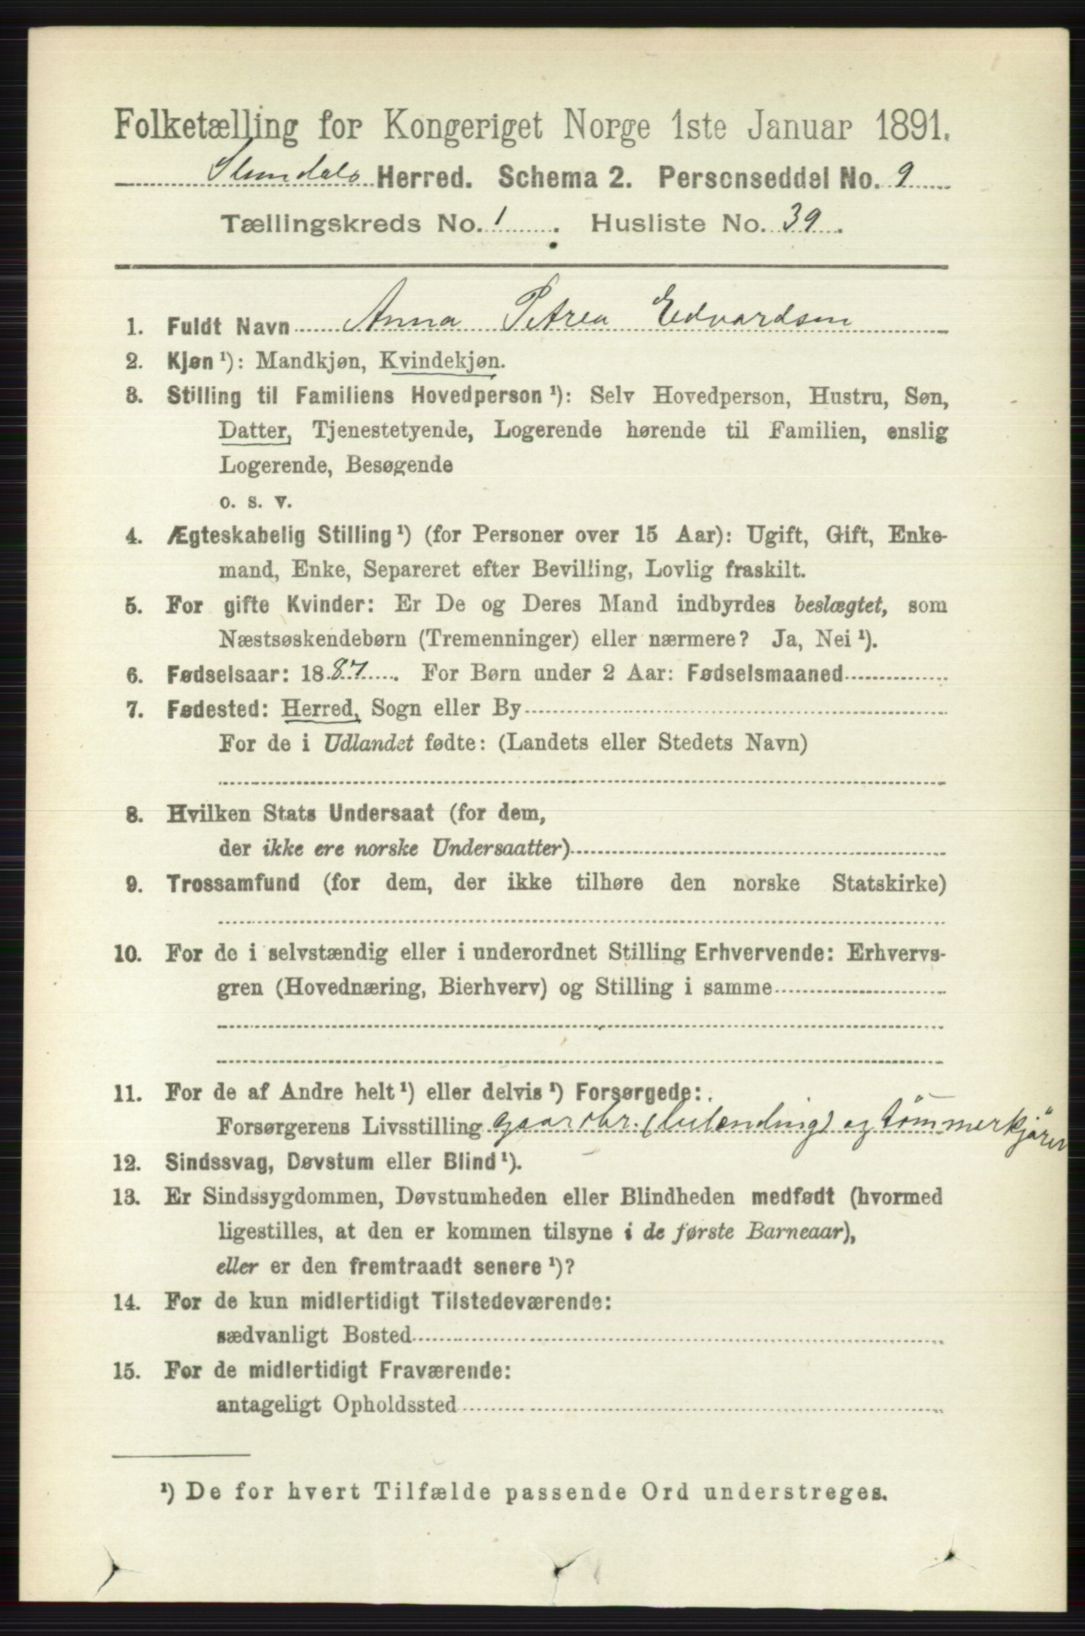 Folketælling for Kongeriget Norge 1ste Januar 1891.
Herred. Schema 2. Personseddel No. 9
Tællingskreds No. 1. Husliste No. 39.
1. Fuldt Navn Anna Petrea Edvardsen
2. Kjøn ¹): Mandkjøn, Kvindekjøn.
3. Stilling til Familiens Hovedperson ¹): Selv Hovedperson, Hustru, Søn,
Datter, Tjenestetyende, Logerende hørende til Familien, enslig
Logerende, Besøgende
o. s. v.
4. Ægteskabelig Stilling ¹) (for Personer over 15 Aar): Ugift, Gift, Enke-
mand, Enke, Separeret efter Bevilling, Lovlig fraskilt.
5. For gifte Kvinder: Er De og Deres Mand indbyrdes beslægtet, som
Næstsøskendebørn (Tremenninger) eller nærmere? Ja, Nei ¹).
6. Fødselsaar: 1887. For Børn under 2 Aar: Fødselsmaaned
7. Fødested: Herred, Sogn eller By
For de i Udlandet fødte: (Landets eller Stedets Navn)
8. Hvilken Stats Undersaat (for dem,
der ikke ere norske Undersaatter)
9. Trossamfund (for dem, der ikke tilhøre den norske Statskirke)
10. For de i selvstændig eller i underordnet Stilling Erhvervende: Erhvervs-
gren (Hovednæring, Bierhverv) og Stilling i samme
11. For de af Andre helt ¹) eller delvis ¹) Forsørgede:
Forsørgerens Livsstilling gaardbr. (leilending) og tömmerkjörer
12. Sindssvag, Døvstum eller Blind ¹).
13. Er Sindssygdommen, Døvstumheden eller Blindheden medfødt (hvormed
ligestilles, at den er kommen tilsyne i de første Barneaar),
eller er den fremtraadt senere ¹)?
14. For de kun midlertidigt Tilstedeværende:
sædvanligt Bosted
15. For de midlertidigt Fraværende:
antageligt Opholdssted
¹) De for hvert Tilfælde passende Ord understreges.